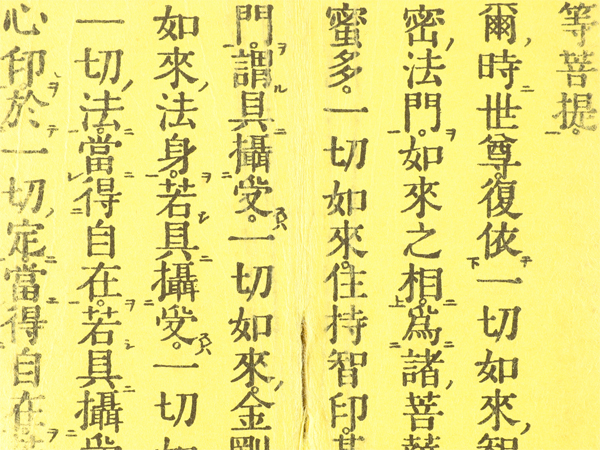 等菩提。
爾時世尊。復依一切如來智
密法門。如來之相。爲諸菩
蜜多。一切如來。住持智印
門。謂具攝受。一切如來。金剛
如來法身。若具攝受。一切
一切法。當得自在。若具攝
心印於一切定當得自在